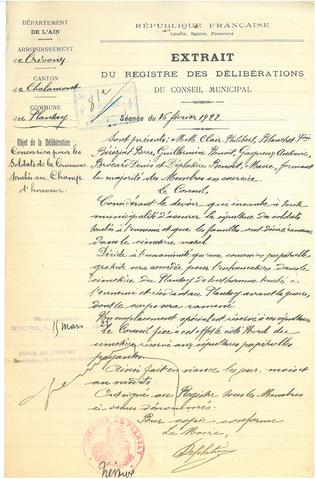 DÉPARTEMENT
DE L'AIN
ARRONDISSEMENT
de Trévoux
CANTON
de Chalamont
COMMUNE
du Plantay
Objet de la Délibération:
Concession pour les
Soldats de la Commune
tombés au Champ
d'honneur.
RÉPUBLIQUE FRANÇAISE
Liberté, Égalité, Fraternité
EXTRAIT
DU REGISTRE DES DÉLIBÉRATIONS
DU CONSEIL MUNICIPAL
Séance du 16 février 1922.
Sont présents: MM. Clair Philibert, Blanchet
Pierre, Guillermin Benoit,
Louis et Benoit, Maire, formant
la majorité des Membres en exercice.
Le Conseil,
Considérant le devoir qui incombe à toute
municipalité d'assurer la sépulture des soldats
tombés à l'ennemi et que les familles ont désiré ramener
dans le cimetière natal
Décide à l'unanimité qu'une concession perpétuelle
gratuite sera accordée pour l'inhumation dans le
cimetière du Plantay de tout homme tombé à
l'ennemi et résidant au Plantay avant la guerre,
dont le corps sera ramené.
Un emplacement spécial est réservé à ces sépultures
Le Conseil fixe à cet effet le côté Nord du
cimetière réservé aux sépultures perpétuelles
Ainsi fait en séance les jour, mois et
an susdits.
Ont signé au Registre tous les Membres
ci-dessus dénommés.
Pour copie conforme
Le Maire,
15 mars